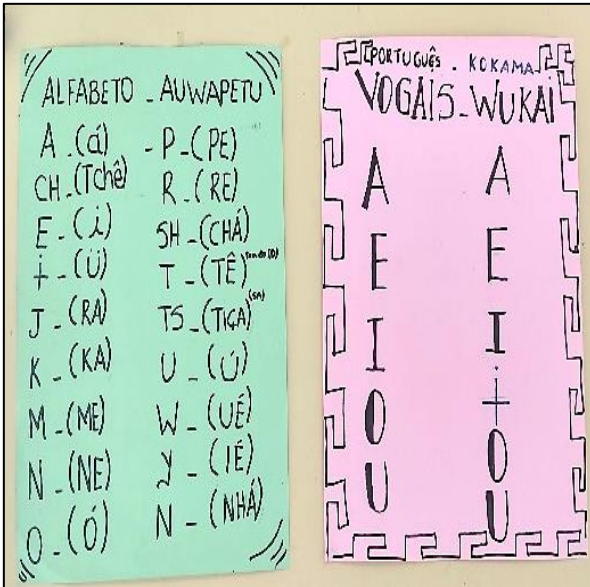 ALFABETO - AUWAPETU
A - (á)
CH - (Tchê)
E - (i)
ɨ - (Ü)
J - (RA)
K - (KA)
M - (ME)
N - (NE)
O - (Ó)
- P - (PE)
R - (RE)
SH - (CHÁ)
T - (TÊ)
TS - (TIÇA) (SA)
U - (Ú)
W - (UÉ)
Y - (IÉ)
N - (NHÁ)
PORTUGUÊS - KOKAMA
VOGAIS - WUKAI
A A
E E
I I
O ɨ
U O
U